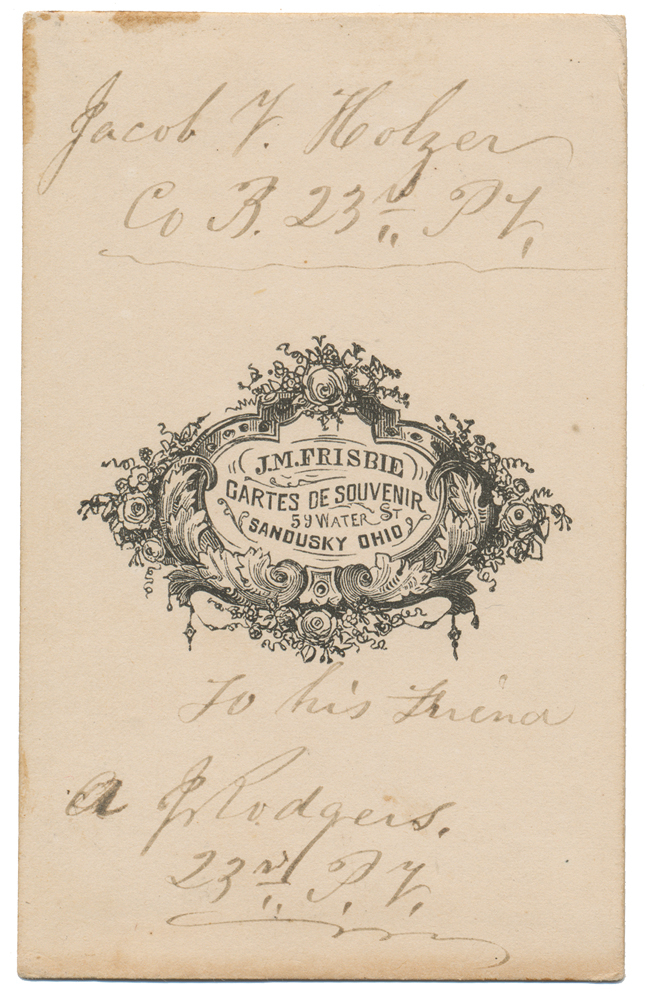 Jacob V. Holzer
Co B. 23rd P V.
J.M. FRISBIE
CARTES DE SOUVENIR
59 WATER ST
SANDUSKY OHIO
To his Friend
A J Rodgers.
23rd P. V.